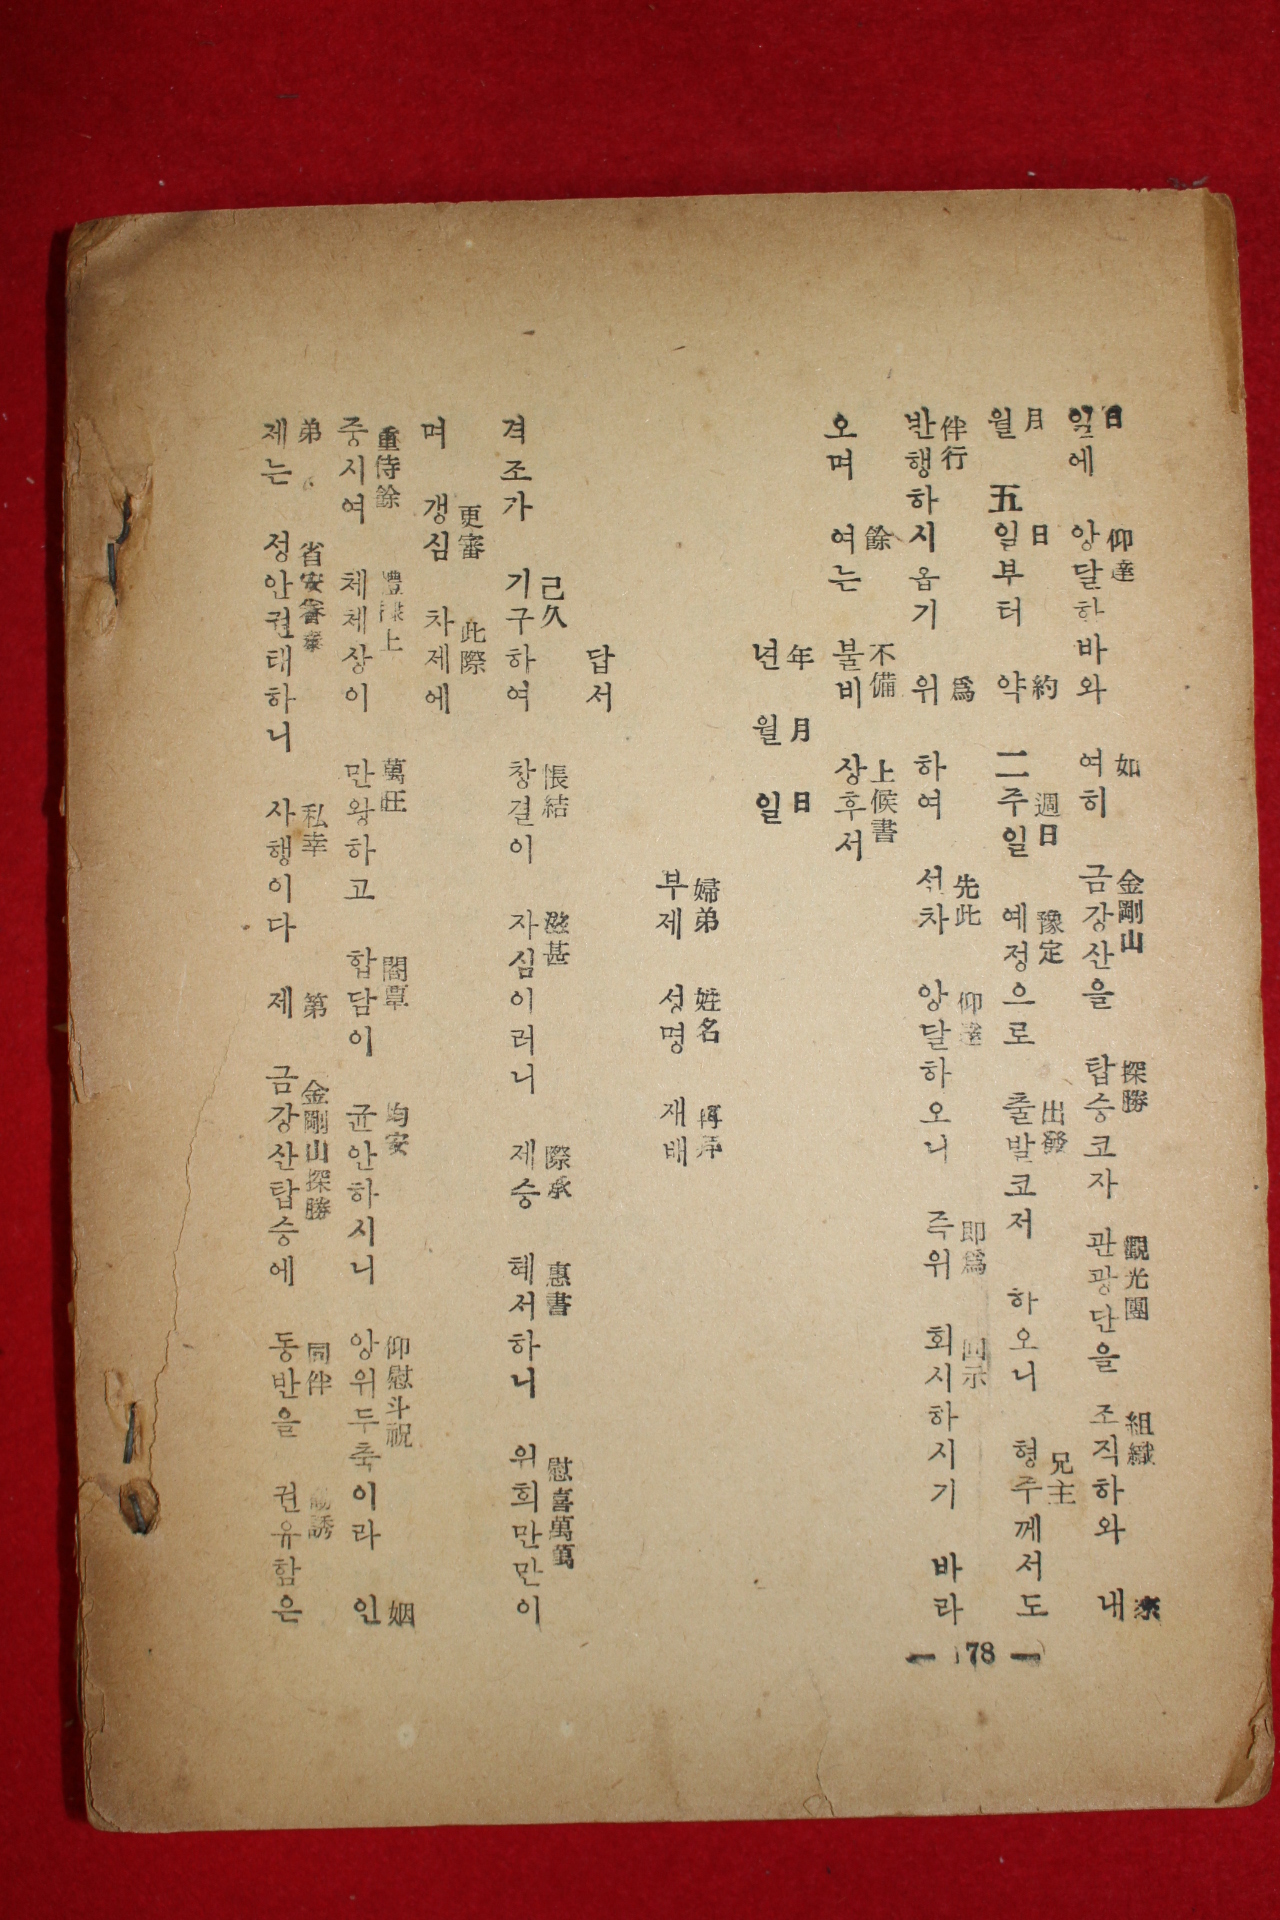 일에 앙달한바와 여히 금강산을 탑승코자 관광단을 조직하와 내
日 仰達 如 金剛山 探勝 觀光團 組織 來
월 五일부터 약 二주일 예정으로 출발코저 하오니 형주께서도
月 日 約 週日 豫定 出發 兄主
반행하시옵기 위하여 선차 앙달하오니 즉위 회시하시기 바라
伴行 爲 先此 仰達 即爲 回示
오며 여는 불비 상후서
餘 不備 上候書
년 월 일
年 月 日
부제 성명 재배
婦弟 姓名 再拜
답서
격조가 기구하여 창결이 자심이러니 제승 혜서하니 위희만만이
己久 悵結 滋甚 際承 惠書 慰喜萬萬
며 갱심 차제에
更審 此際
중시여 체체상이 만왕하고 합담이 균안하시니 앙위두축이라 인
重侍餘 上 萬旺 閤覃 均安 仰慰斗祝 姻
제는 성안권태하니 사행이다 제 금강산탑승에 동반을 권유함은
弟 省安 私幸 第 金剛山探勝 同伴 勸誘
— 78 —